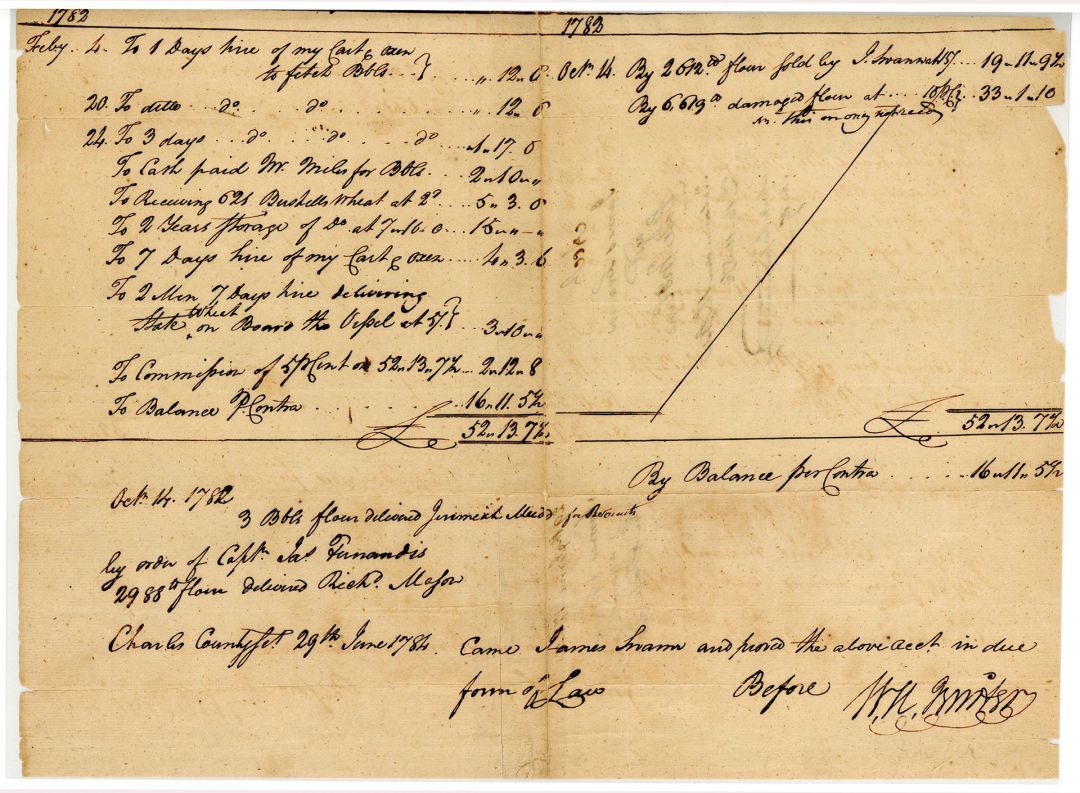 1782
Feby. 4. To 1 Days hire of my Cart & oxen
to fetch Bbls ... } .. „ 12 „ 6
20. To ditto ... do ... do ... „ 12 „ 6
22. To 3 days ... do ... do ... do „ 1 „ 17 . 6
To Cash paid Mr. Miles for Bbls. ... 2 „ 10 „ „
To Receiving 621 Bushells Wheat at 2d .... 5 „ 3 . 6
To 2 Years Storage of do at 7 „ 10 . 0 .... 15 „ „ – „
To 7 Days hire of my Cart & oxen ..... 4 „ 3 . 6
To 2 Men 7 Days hire delivering
State Wheat on Board the Vessel at 5/. } .. 3 „ 10 „ „
To Commission of 5 P Cent on 52 „ 13 „ 7½ ... 2 „ 12 „ 8
To Balance P Contra ........ 16 „ 11 . 5½
£ 52 „ 13 . 7½
1782
Octr. 14. By 2612 lb flour sold by J. Swann at 15/. ... 19 „ 11 „ 9½
By 6,619 lb damaged flour at .... 10/ P Ct. .. 33 „ 1 „ 10
NB. this money not recd
£ 52 „ 13 . 7½
By Balance per Contra ..... „ 16 „ 11 „ 5½
Octr. 14. 1782
3 Bbls flour delivered Jerimiah Mudd for Biscuits
by order of Captn. Jas. Farnandis
2988 lb flour delivered Richd. Mason
Charles County Sct. 29th June 1784. Came James Swann and proved the above acct in due
form of Law Before